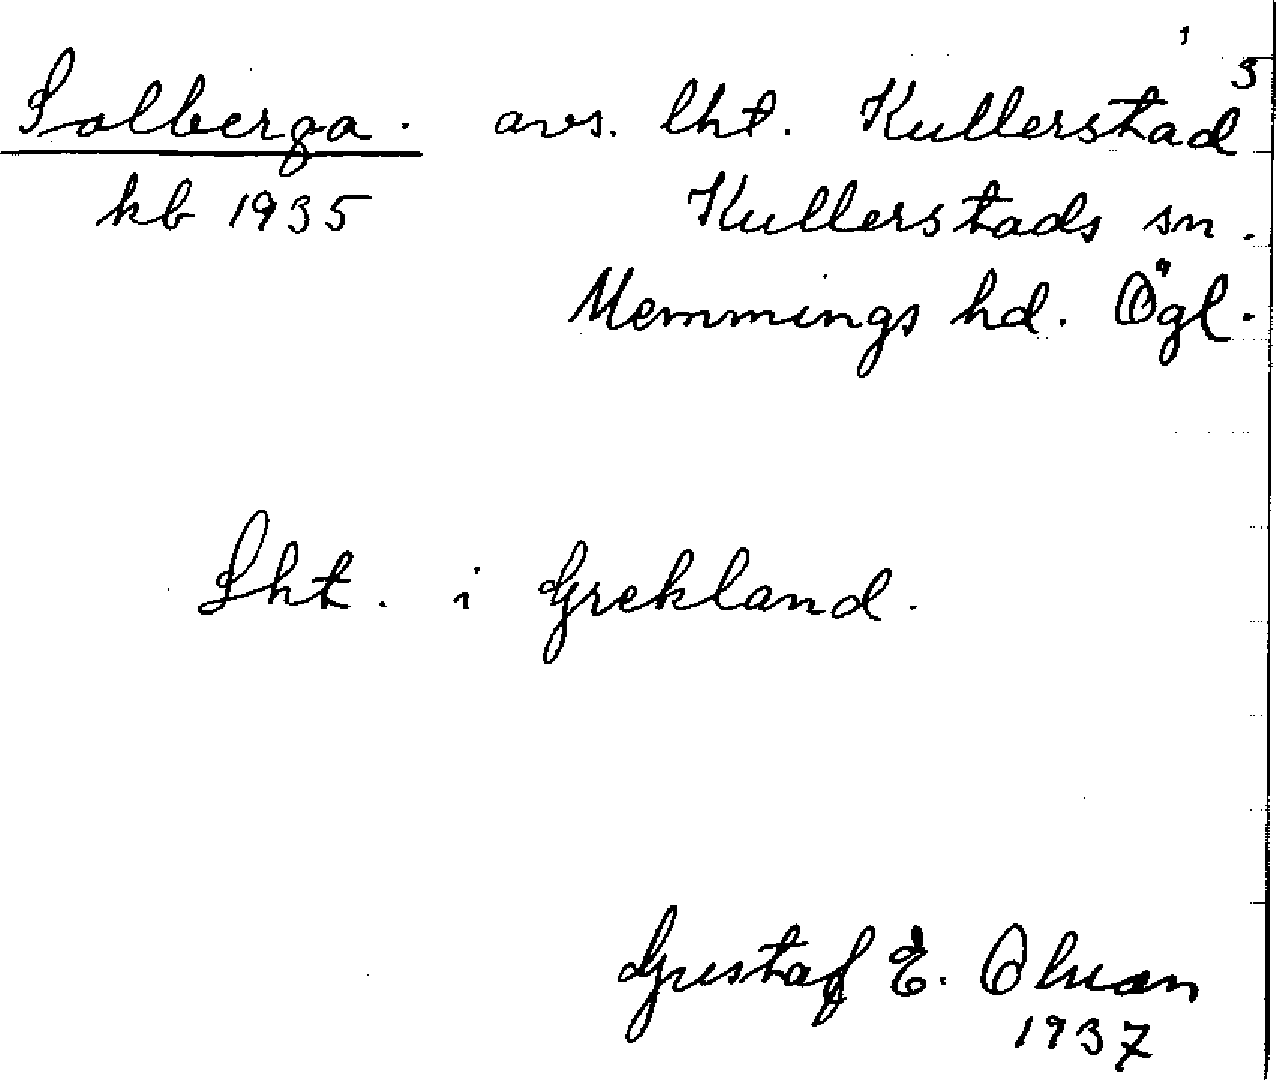 Solberga. avs. lht. Kullerstad 3
kb 1935 Kullerstads sn.
Memmings hd. Ögl.
Lht. i Grekland.
Gustaf E. Olsson
1937